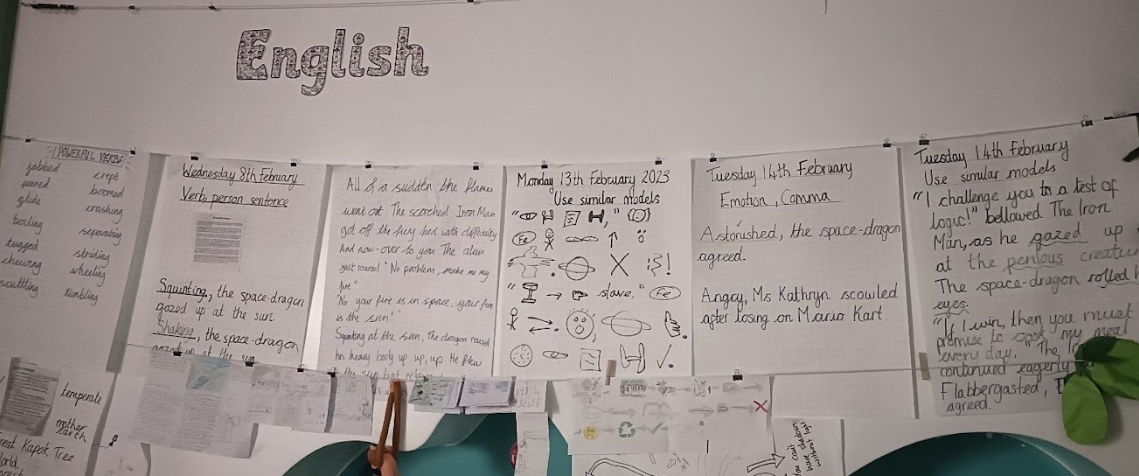 English
POWERFUL VERBS
jabbed crept
peered boomed
glide crashing
boiling separating
tugged striding
chewing wheeling
scuttling tumbling
Wednesday 8th February
Verb, person sentence
Squinting, the space-dragon
gazed up at the sun.
Shaking, the space-dragon
gazed up at the sun
All of a sudden the flames
went out. The scorched Iron Man
got off the fiery bed with difficulty
And now over to you. The alien
just roared. "No problem, make me my
fire"
"No your fire is in space, your fire
is the sun!"
Squinting at the sun, The dragon raised
his heavy body up, up, up. He flew
the sun but
Monday 13th February 2023
Use similar models
Fe
slave,"
Fe
Tuesday 14th February
Emotion, Comma
Astonished, the space-dragon
agreed.
Angry, Ms Kathryn scowled
after losing on Mario Kart.
Tuesday 14th February
Use similar models
"I challenge you to a test of
logic!" bellowed The Iron
Man, as he gazed up
at the perilous creature
The space-dragon rolled
eyes.
"If I win, then you must
promise to cook my meat
every day." The
continued eagerly
Flabbergasted,
agreed.
temperate
mother
earth
Kapok Tree
You can't
have
without